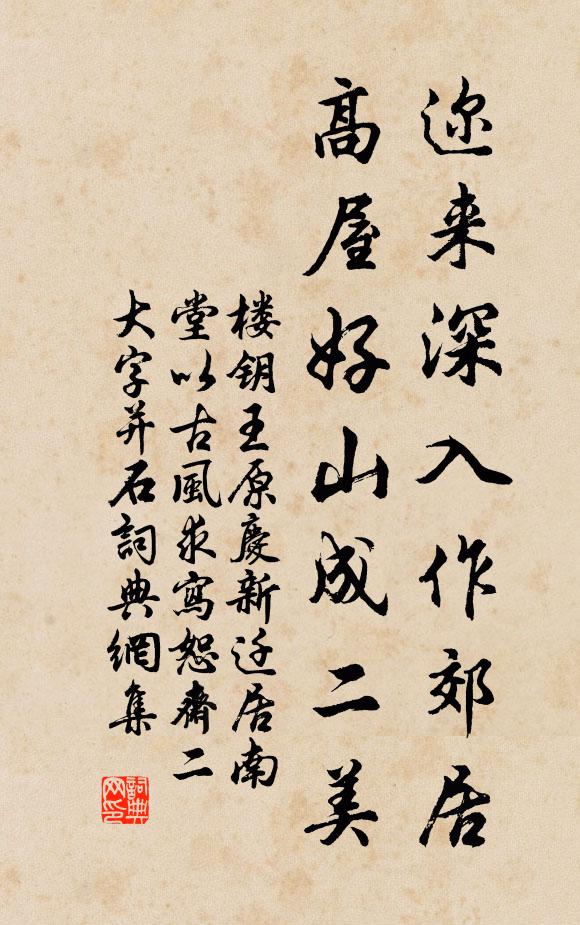 迩来深入作郊居
高屋好山成二美
楼钥王原慶新迁居南
堂以古風求寫恕齋二
大字并石詞典網集
詞典网印